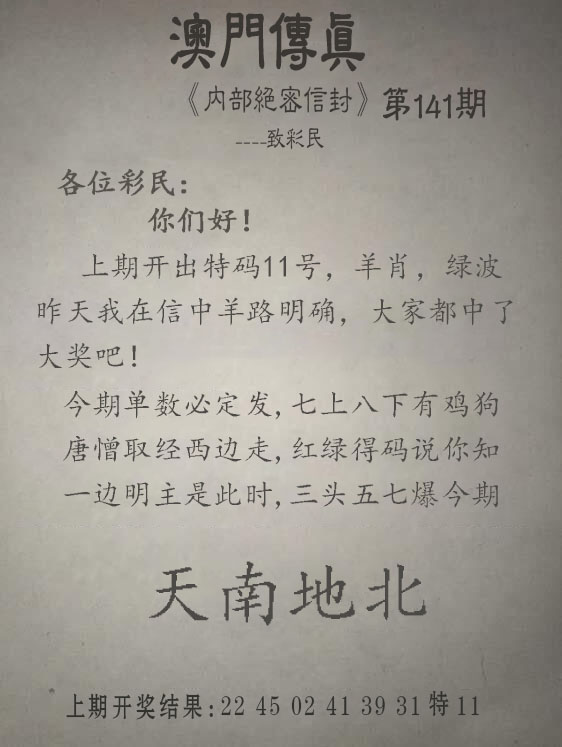 澳門傳真
《内部絕密信封》第141期
----致彩民
各位彩民：
你们好！
上期开出特码11号，羊肖，绿波
昨天我在信中羊路明确，大家都中了
大奖吧！
今期单数必定发,七上八下有鸡狗
唐憎取经西边走,红绿得码说你知
一边明主是此时,三头五七爆今期
天南地北
上期开奖结果:22 45 02 41 39 31 特 11